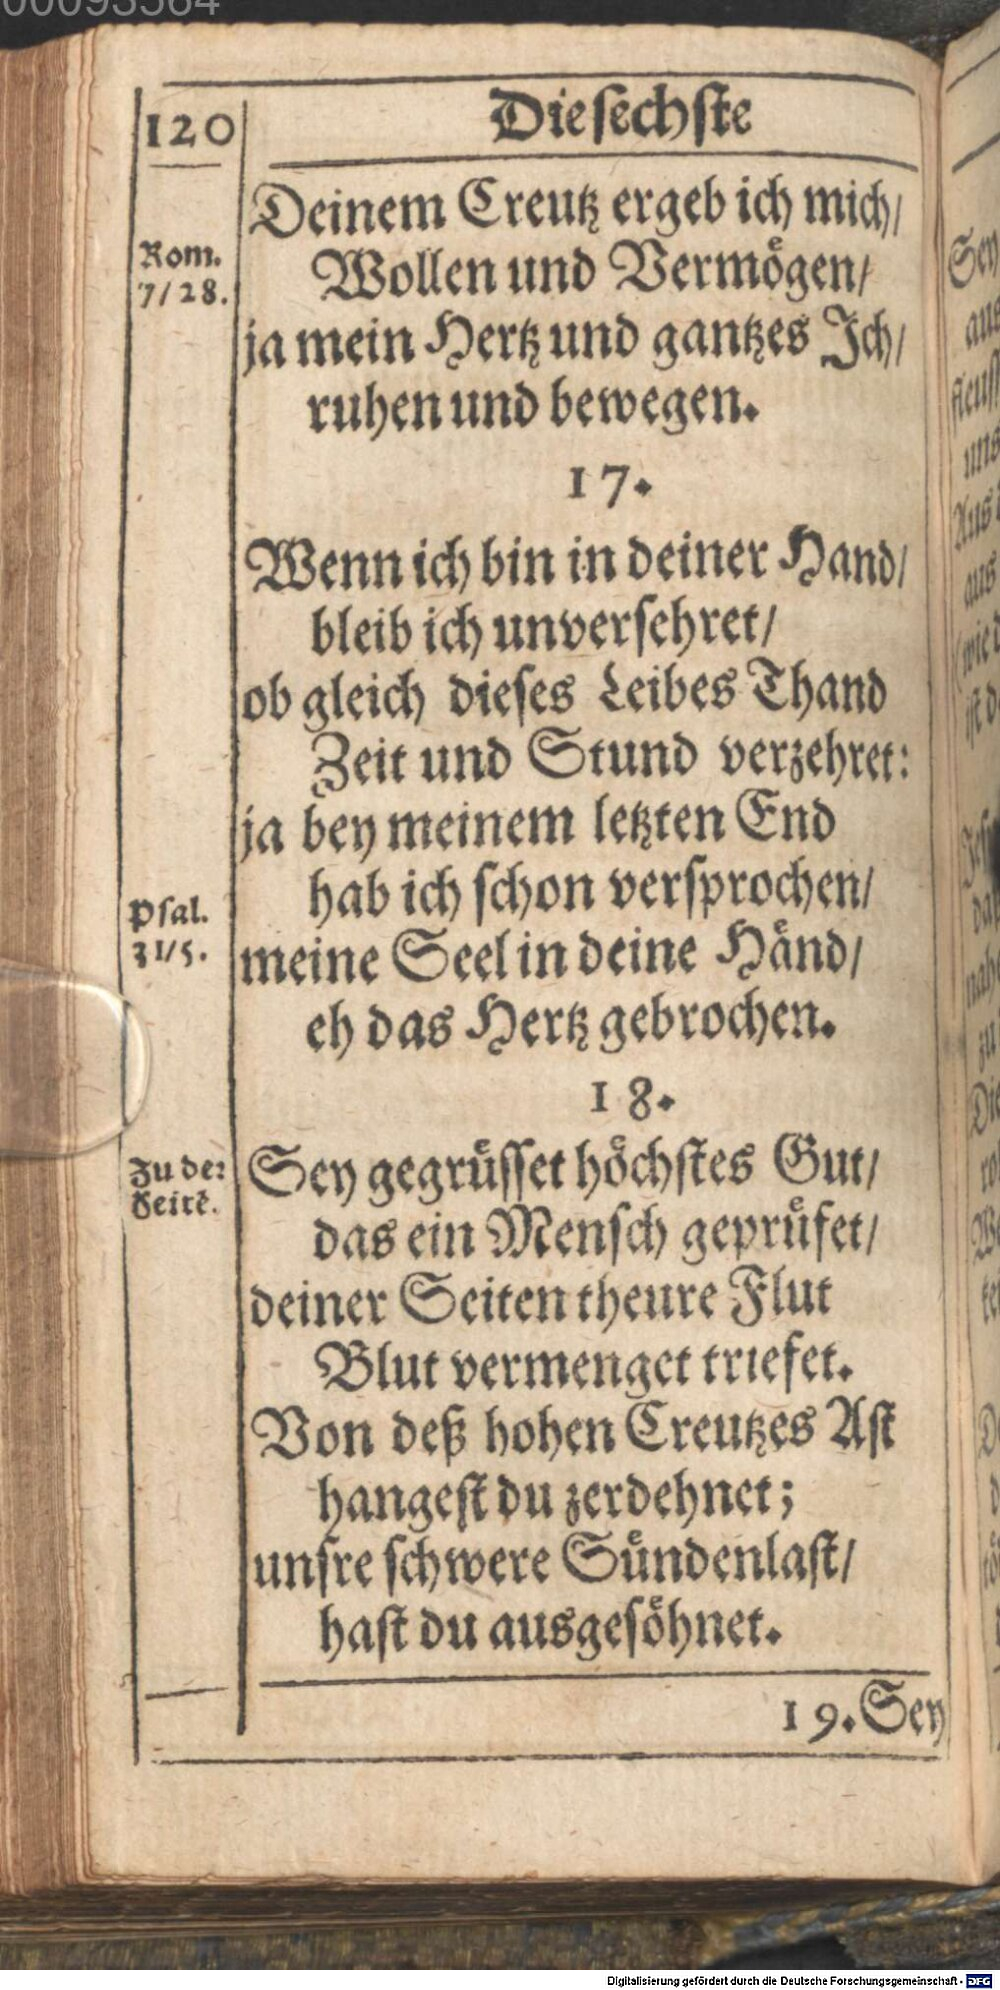 00093564
120
Die sechste
Deinem Creutz ergeb ich mich/
Rom.
7/28.
Wollen und Vermögen/
ja mein Hertz und gantzes Ich/
ruhen und bewegen.
17.
Wenn ich bin in deiner Hand/
bleib ich unversehret/
ob gleich dieses Leibes Thand
Zeit und Stund verzehret:
ja bey meinem letzten End
hab ich schon versprochen/
Psal.
31/5.
meine Seel in deine Händ/
eh das Hertz gebrochen.
18.
Zu der
Seitē.
Sey gegrüsset höchstes Gut/
das ein Mensch geprüfet/
deiner Seiten theure Flut
Blut vermenget triefet.
Von deß hohen Creutzes Ast
hangest du zerdehnet;
unsre schwere Sündenlast/
hast du ausgesöhnet.
19. Sey
Digitalisierung gefördert durch die Deutsche Forschungsgemeinschaft - DFG